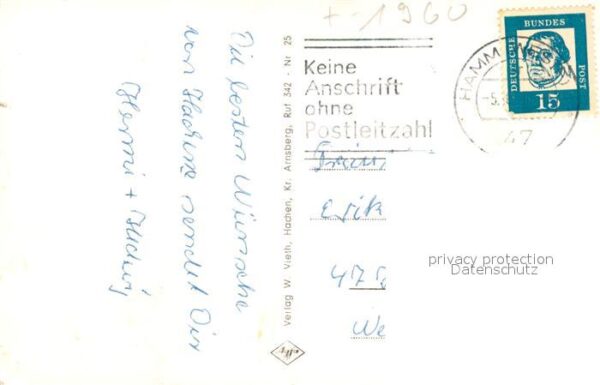 +-1960
Die besten Wünsche
von Hachen sendet Dir
Henni + Hedwig
Verlag W. Vieth, Hachen, Kr. Arnsberg, Ruf 342 - Nr 25
Keine
Anschrift
ohne
Postleitzahl
HAMM
-5.
47
DEUTSCHE
BUNDES
POST
15
Erik
475
We
privacy protection
Datenschutz